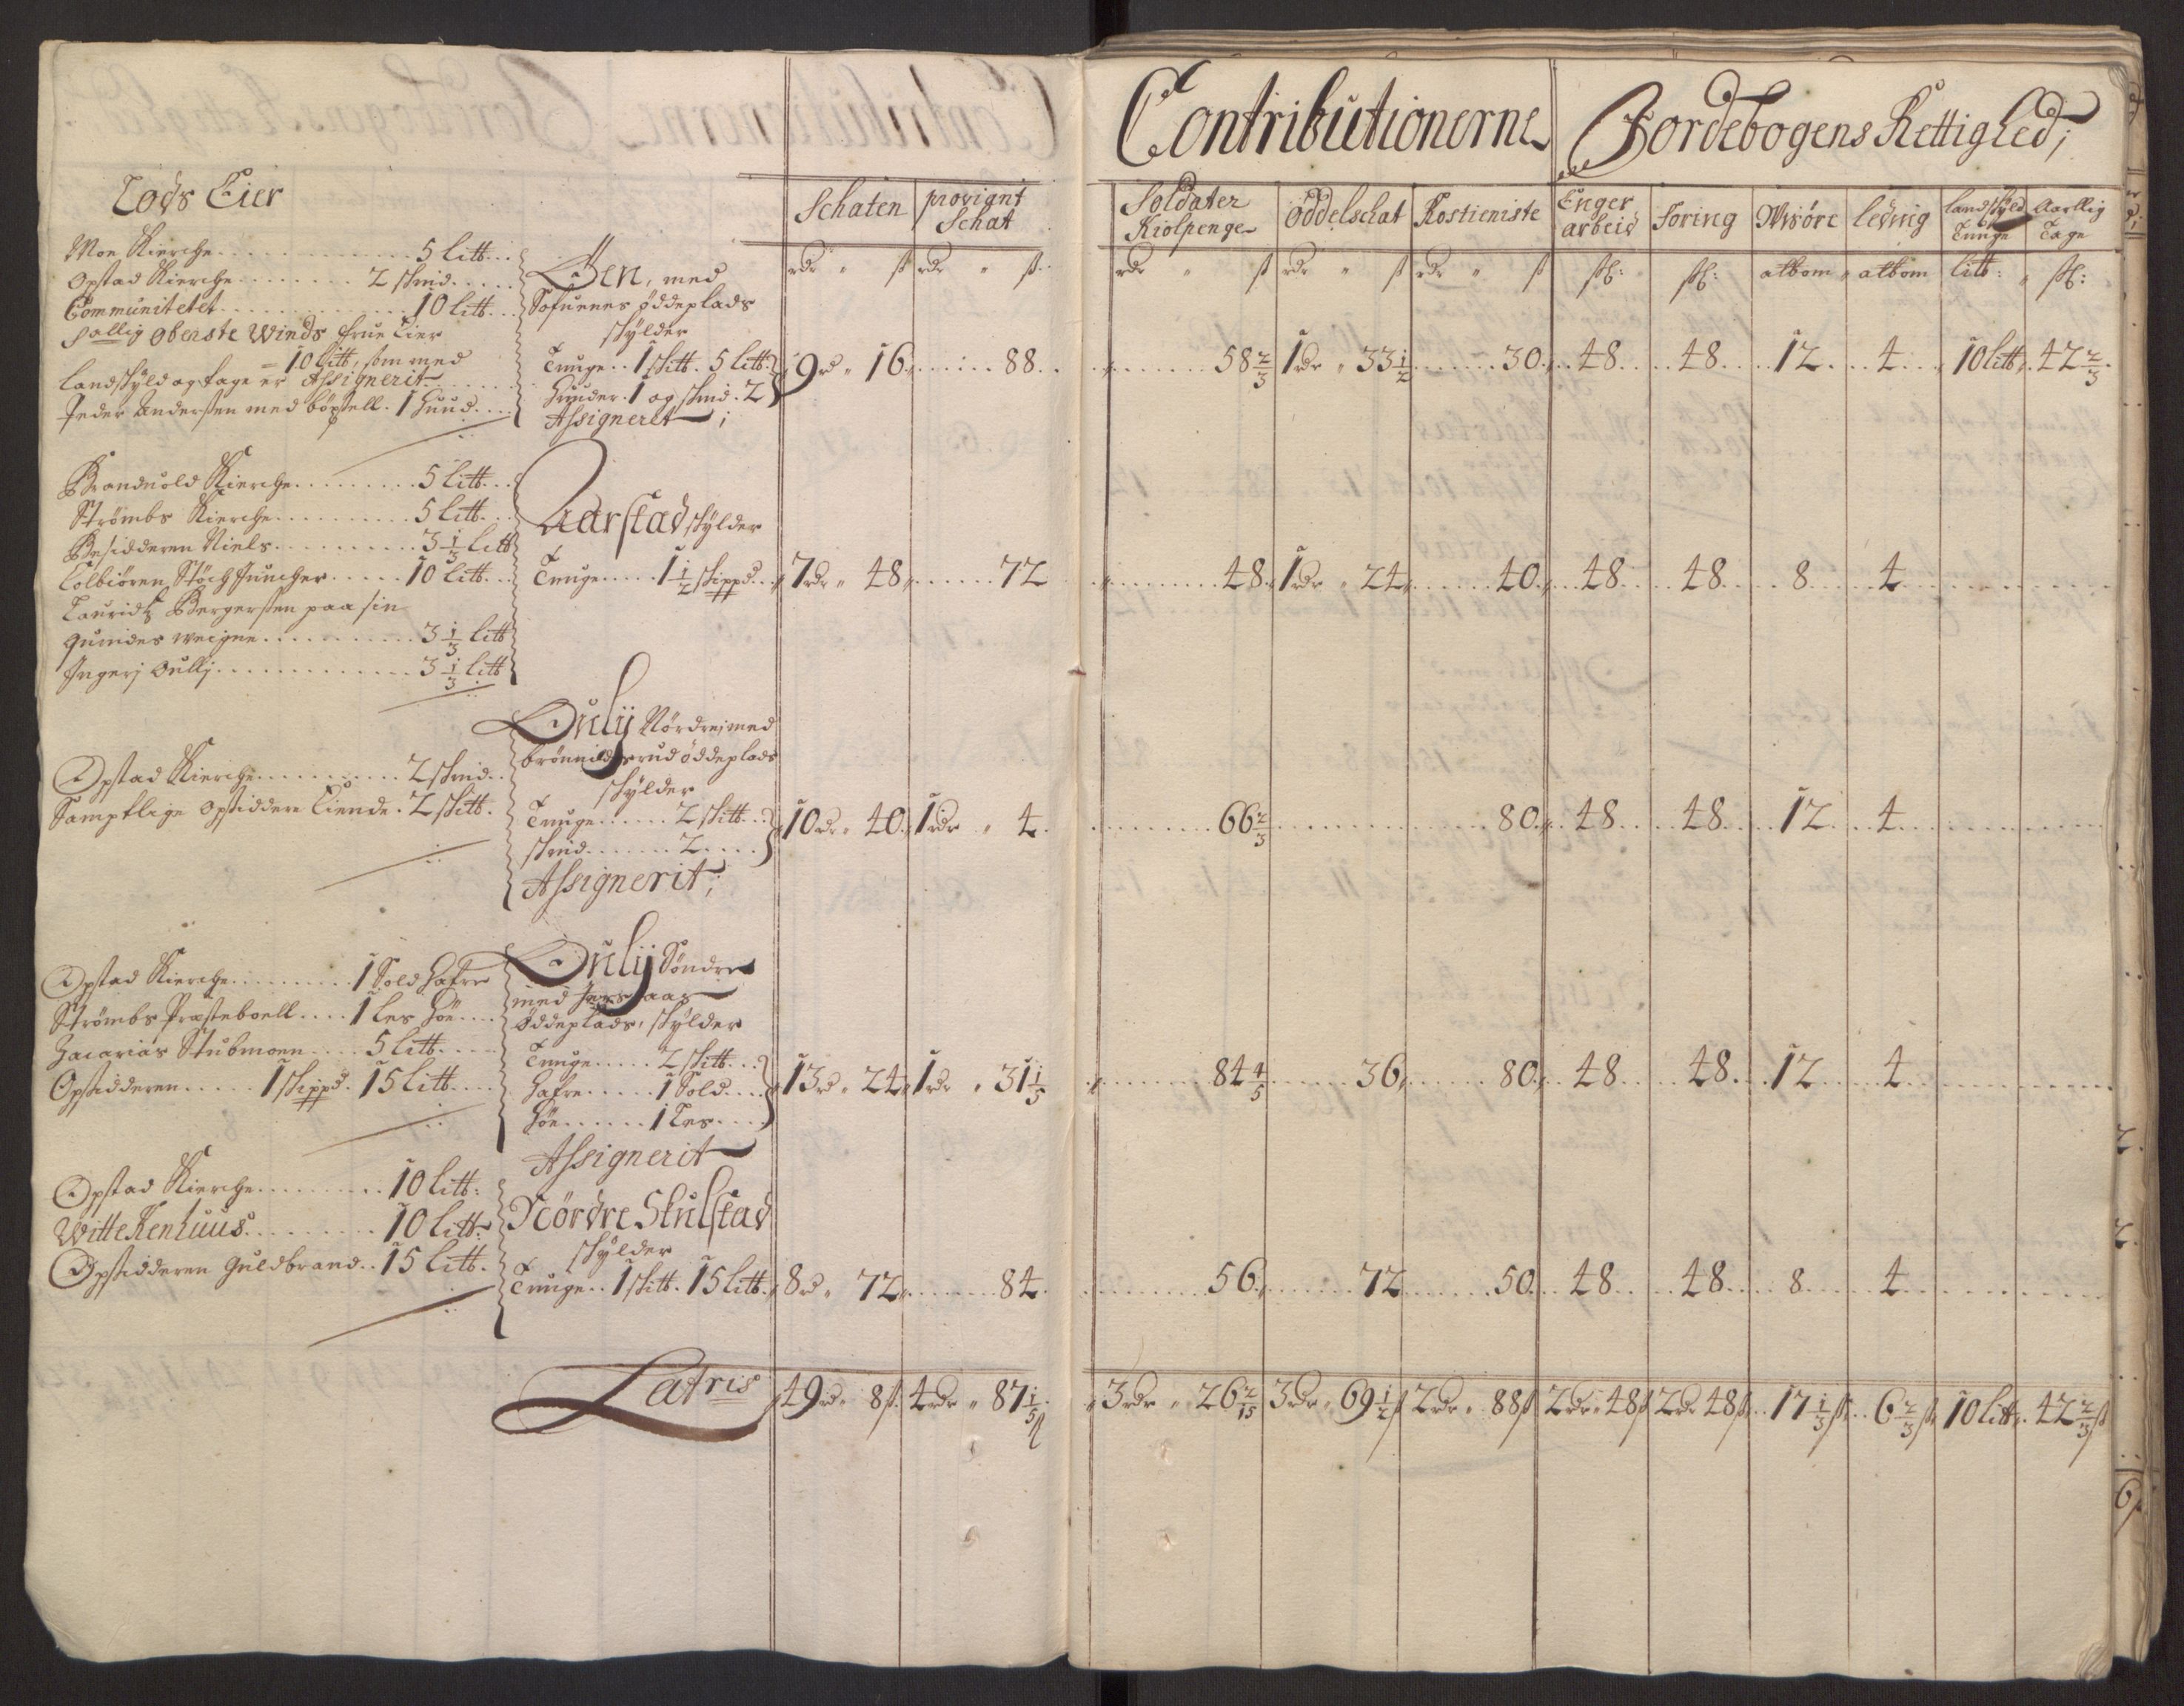 Contributionerne
Jordebogens Rettighed;
Lods Eier
Schaten
proviant Schat
Soldater Kiolpenge
Oddelschat
Rostieniste
Enger arbeid
Foring
Wiisöre
leding
Landskyld Tunge
Aarllig Tage
rdr " ß rdr " ß
rdr " ß rdr " ß rdr " ß ßk: ßk: albom " albom litt: " ßk:
Moe Kierche 5 litt
Opstad Kierche 2 skind
Communitetet 10 litt
Sallig Obenste Winds frue Eier
10 litt, som med
landskyld og tage er Assignerit
Peder Andersen med böxsell. 1 huud
Gen, med
Sofuenes öddeplads
skylder
Tunge 1 skitt. 5 litt
Huuder. 1 og skind. 2
Assignerit;
9 rd " 16 88 58 2/3 1 rdr " 33 1/2 30 48 48 12 4 10 litt 42 2/3
Branduold Kierche 5 litt
Strömbs Kierche 5 litt
Besidderen Niels 3 1/3 litt
Tolbiören Stöch Juncher 10 litt
Lauridtz Bergersen paa sin
quindes weigne 3 1/3 litt
Ingerj Oullj 3 1/3 litt
Aarstad skylder
Tunge 1 1/2 skippd
7 rdr " 48 72 48 1 rdr " 24 40 48 48 8 4
Opstad Kierche 2 skind
Samptlige Opsiddere Eiende. 2 skitt.
Oulij Nördre med
öddeplads
skylder
Tunge 2 skitt
skind 2
Assignerit;
10 rdr " 40 1 rdr " 4 66 2/3 80 48 48 12 4
Opstad Kierche 1 Sold hafre
Strömbs Præsteboell 1 les höe
Zacarias Stubmoen 5 litt
Opsidderen 1 skippd. 15 litt
Oulij Söndre
med
Öddeplads, skylder
Tunge 2 skitt
Hafre 1 Sold
Höe 1 Les
Assignerit
13 rd " 24 1 rdr " 31 1/5 84 4/5 36 80 48 48 12 4
Opstad Kierche 10 litt:
Wittekenhuus 10 litt:
Opsidderen Guldbrand 15 litt.
Nördre Skulstad
skylder
Tunge 1 skitt. 15 litt
8 rd " 72 84 56 72 50 48 48 8 4
Latris
49 rd " 8 ß 4 rdr " 87 1/5 ß 3 rdr " 26 2/15 3 rdr " 69 1/2 ß 2 rdr " 88 ß 2 rdr " 48 ß 2 rdr 48 ß 17 1/3 ß 6 2/3 ß 10 litt 42 2/3 ß